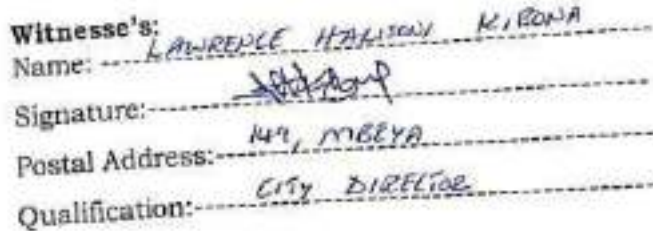 Witnesse's:
Name: LAWRENCE KIBONA
Signature:
Postal Address: 149, MBEYA
Qualification: CITY DIRECTOR